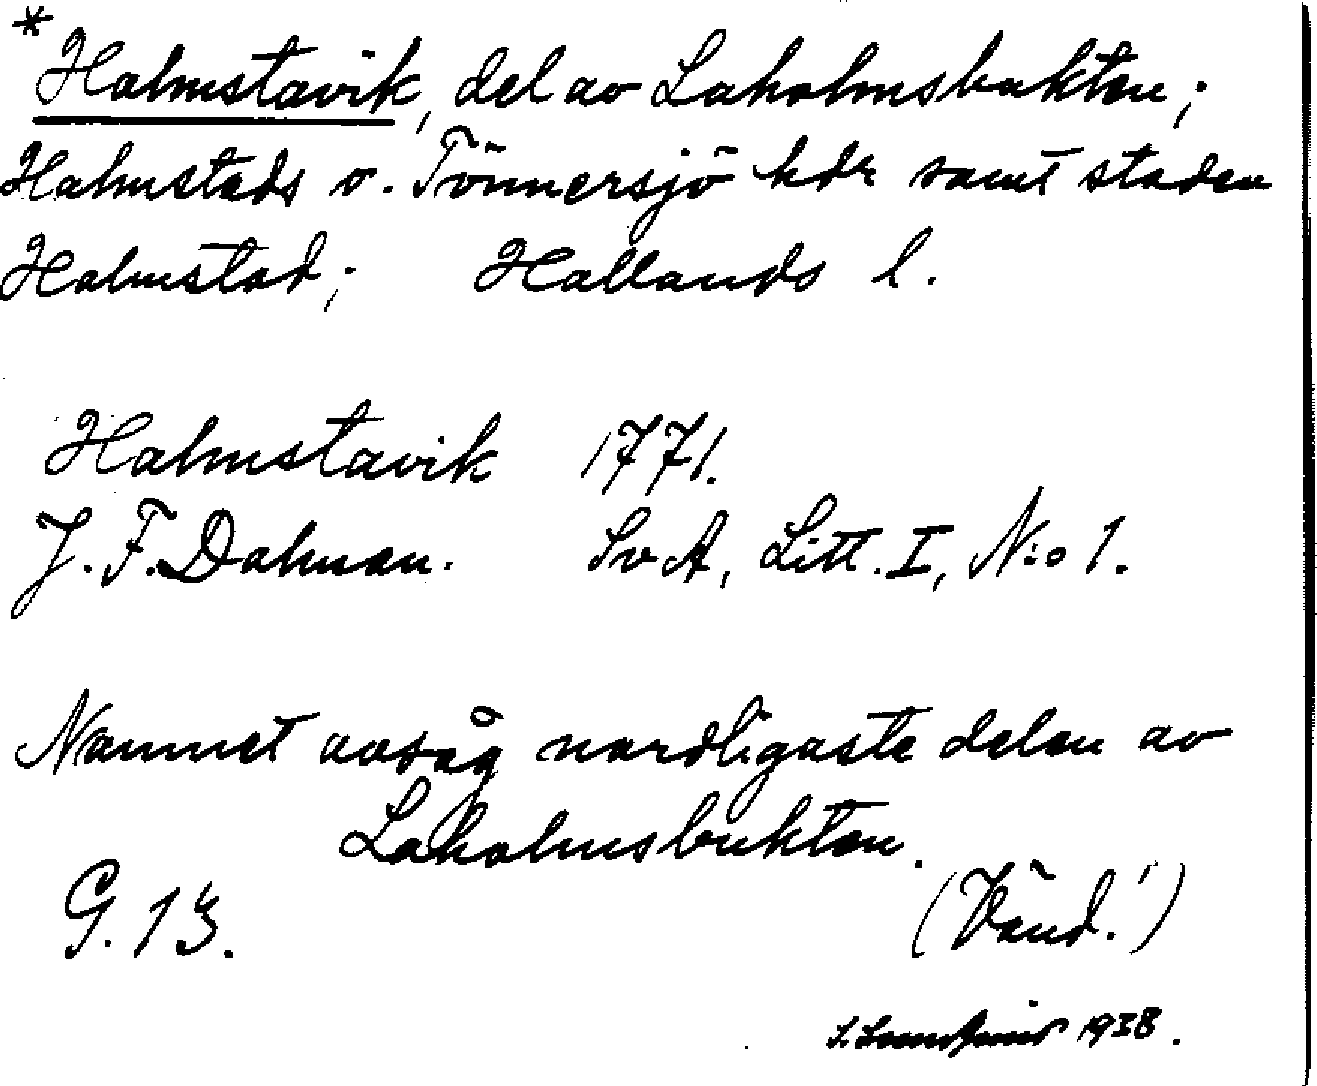 *Halmstavik, del av Laholmsbukten;
Halmstads o. Tönnersjö hdr samt staden
Halmstad; Hallands l.
Halmstavik 1771.
J. F. Dalman. SvA, Litt. I, N:o 1.
Namnet avsåg nordligaste delen av
Laholmsbukten.
G. 13. (Vänd!)
1938.